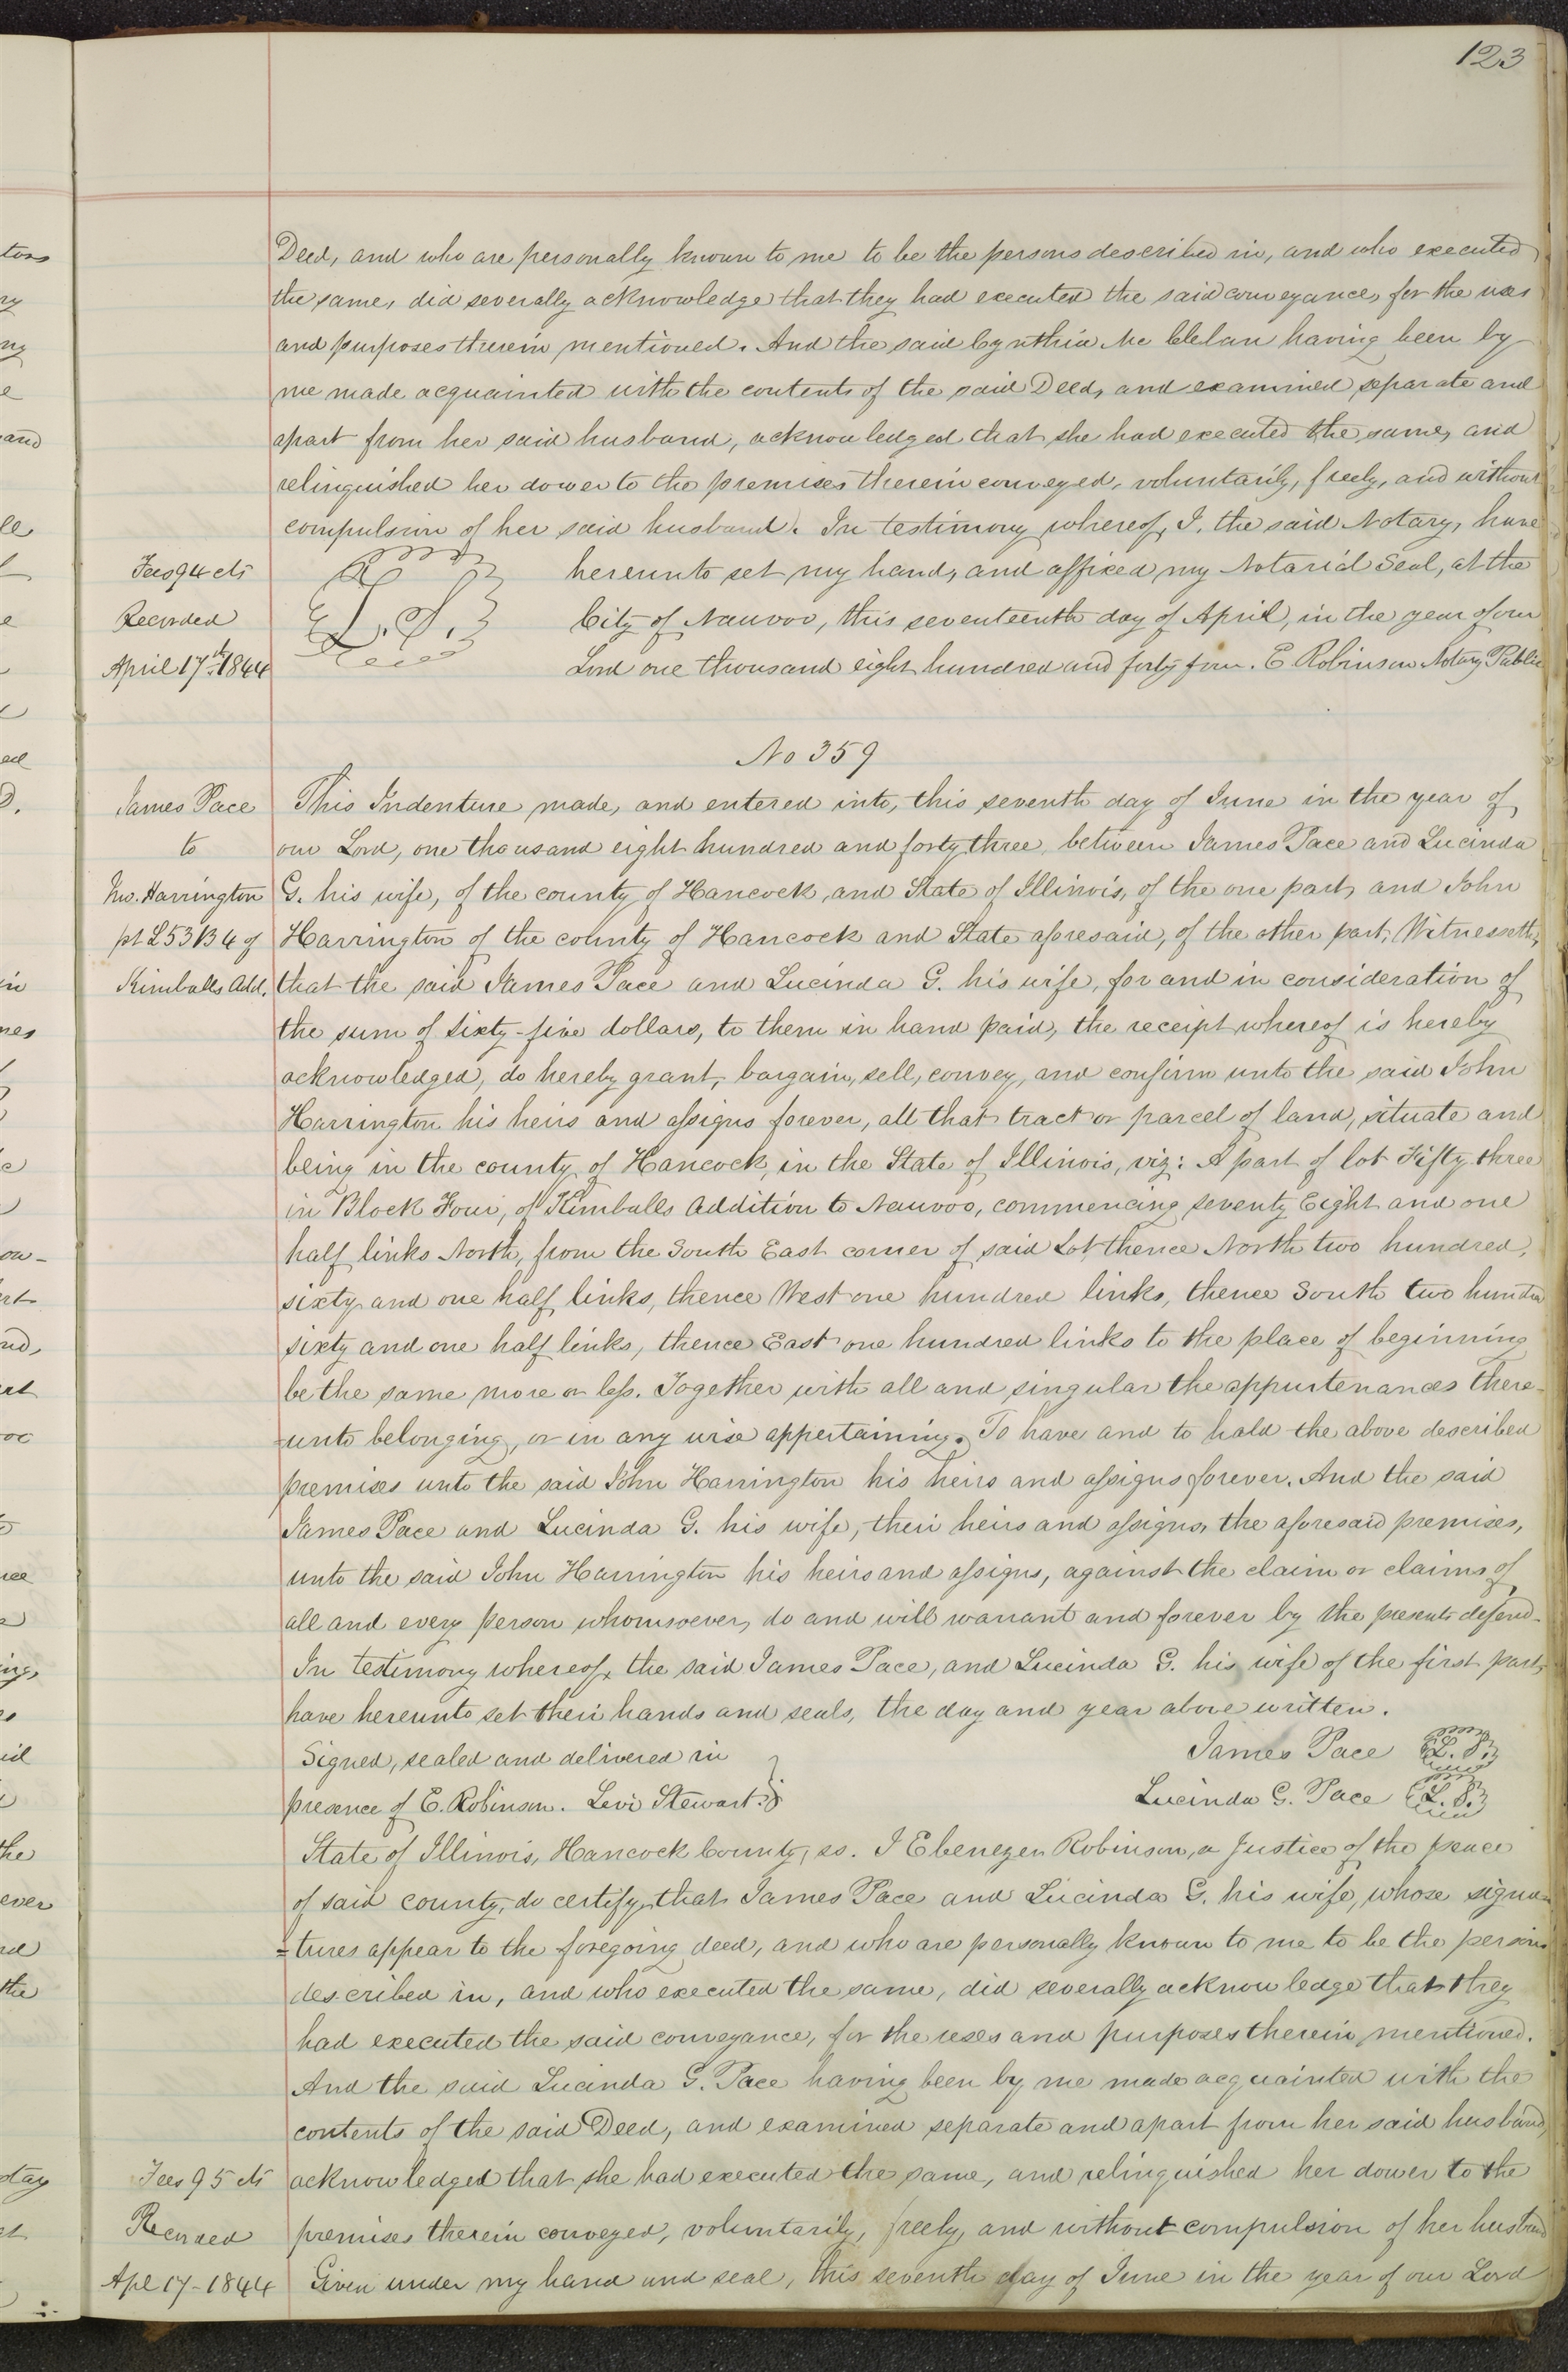 123
Deed, and who are personally known to me to be the persons described in, and who executed
the same, did severally acknowledge that they had executed the said conveyance, for the uses
and purposes therein mentioned. And the said Cynthia Mc Clelan having been by
me made acquainted with the contents of the said Deed, and examined separate and
apart from her said husband, acknowledged that she had executed the same, and
relinquished her dower to the premises therein conveyed, voluntarily, freely, and without
compulsion of her said husband. In testimony whereof, I, the said Notary, have
hereunto set my hand, and affixed my Notarial Seal, at the
City of Nauvoo, this seventeenth day of April, in the year of our
Lord one thousand eight hundred and forty four. E Robinson Notary Public
L. S.
Fees 94 cts
Recorded
April 17th 1844
No 359
James Pace
to
Jno. Harrington
pt L53 B4 of
Kimballs Add.
This Indenture made, and entered into, this seventh day of June in the year of
our Lord, one thousand eight hundred and forty three, between James Pace and Lucinda
G. his wife, of the county of Hancock, and State of Illinois, of the one part, and John
Harrington of the county of Hancock and State aforesaid, of the other part; Witnesseth,
that the said James Pace and Lucinda G. his wife, for and in consideration of
the sum of Sixty-five dollars, to them in hand paid, the receipt whereof is hereby
acknowledged, do hereby grant, bargain, sell, convey, and confirm unto the said John
Harrington his heirs and assigns forever, all that tract or parcel of land, situate and
being in the county of Hancock, in the State of Illinois, viz: A part of lot Fifty three
in Block Four, of Kimballs Addition to Nauvoo, commencing seventy Eight and one
half links North, from the South East corner of said Lot, thence North two hundred,
sixty and one half links, thence West one hundred links, thence South two hundred
sixty and one half links, thence East one hundred links to the place of beginning
be the same more or less. Together with all and singular the appurtenances there-
-unto belonging, or in any wise appertaining. To have and to hold the above described
premises unto the said John Harrington his heirs and assigns forever. And the said
James Pace and Lucinda G. his wife, their heirs and assigns, the aforesaid premises,
unto the said John Harrington his heirs and assigns, against the claim or claims of,
all and every person whomsoever, do and will warrant and forever by the presents defend.
In testimony whereof, the said James Pace, and Lucinda G. his wife of the first part,
have hereunto set their hands and seals, the day and year above written.
Signed, sealed and delivered in
presence of E. Robinson. Levi Stewart.
James Pace L. S.
Lucinda G. Pace L. S.
State of Illinois, Hancock County, ss. I Ebenezer Robinson, a Justice of the peace
of said county, do certify, that James Pace and Lucinda G. his wife, whose signa-
=tures appear to the foregoing deed, and who are personally known to me to be the persons
described in, and who executed the same, did severally acknowledge that they
had executed the said conveyance, for the uses and purposes therein mentioned.
And the said Lucinda G. Pace having been by me made acquainted with the
contents of the said Deed, and examined separate and apart from her said husband,
acknowledged that she had executed the same, and relinquished her dower to the
premises therein conveyed, voluntarily, freely, and without compulsion of her husband
Given under my hand and seal, this seventh day of June in the year of our Lord
Fees 95 cts
Recorded
Apl 17-1844